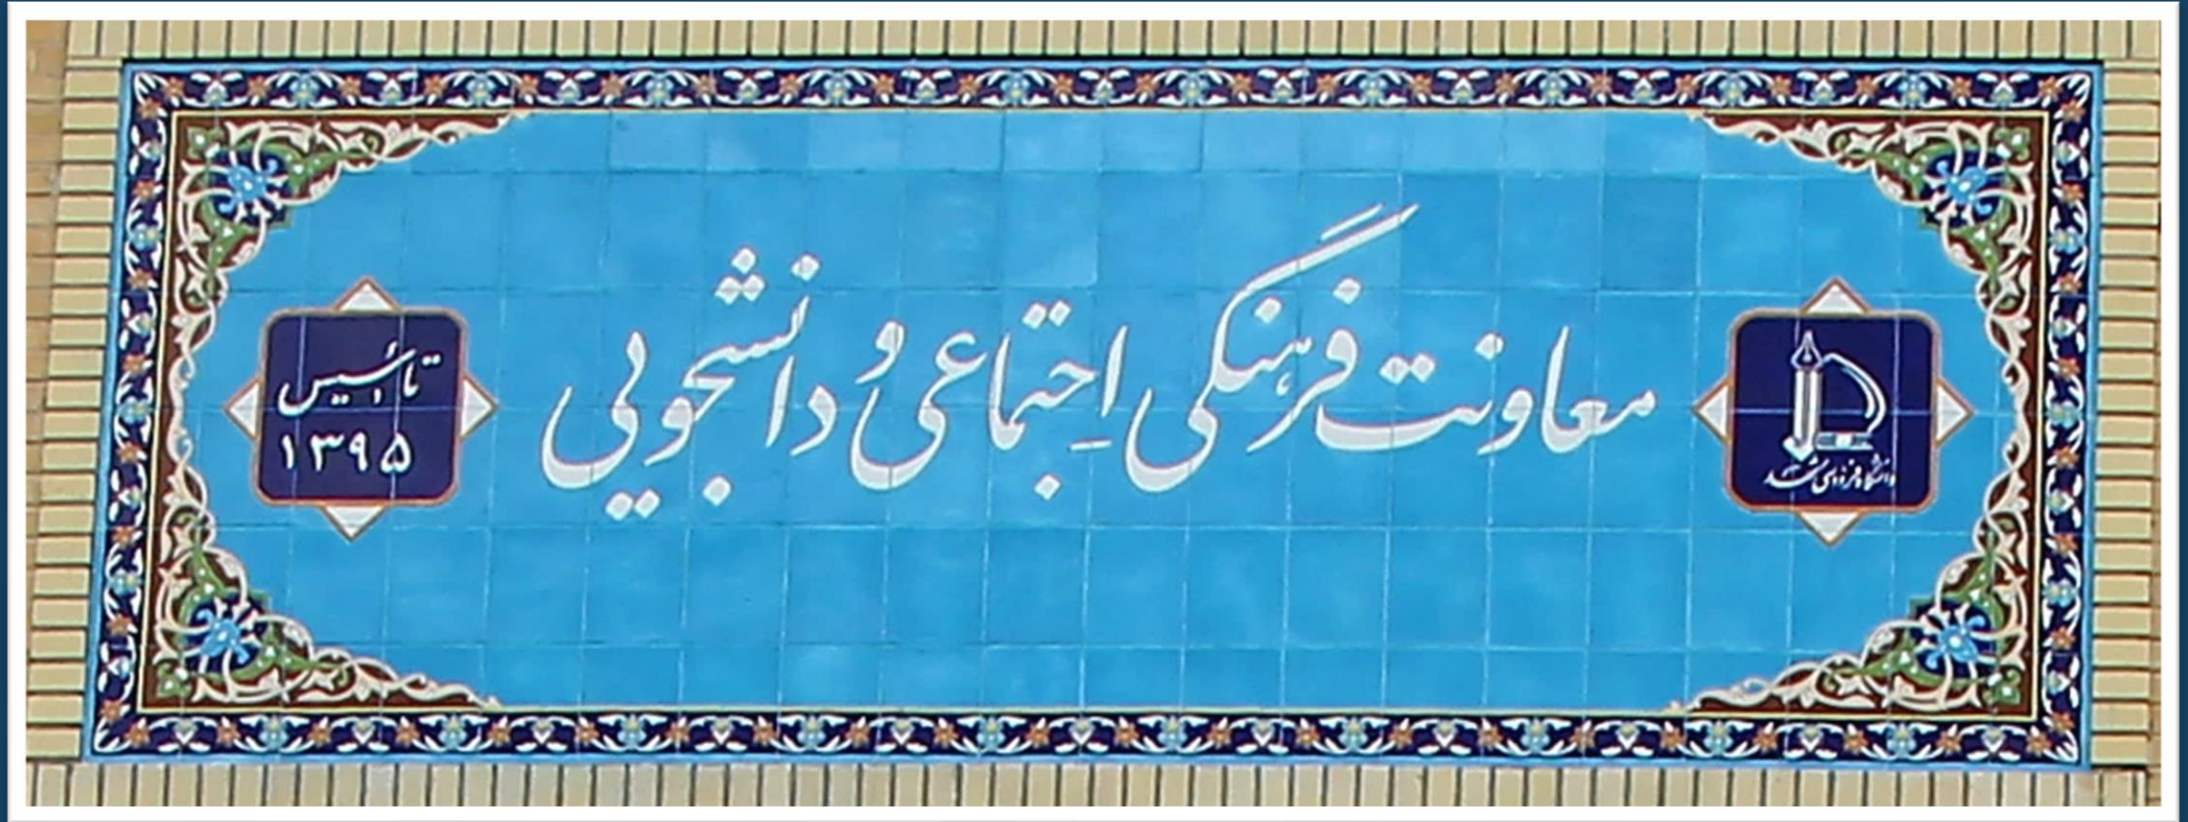 دانشگاه فردوسی مشهد
معاونت فرهنگی اجتماعی و دانشجویی
تأسیس
۱۳۹۵